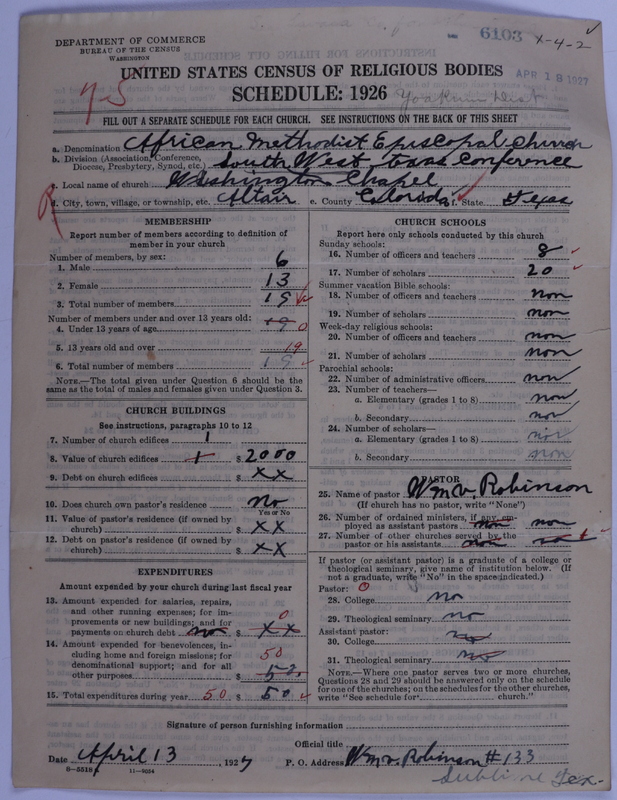 6103 x-4-2
DEPARTMENT OF COMMERCE
BUREAU OF THE CENSUS
WASHINGTON
APR 18 1927
UNITED STATES CENSUS OF RELIGIOUS BODIES
SCHEDULE: 1926 Yoakum Dist
FILL OUT A SEPARATE SCHEDULE FOR EACH CHURCH. SEE INSTRUCTIONS ON THE BACK OF THIS SHEET
a. Denomination African Methodist Episcopal Church
b. Division (Association, Conference, Diocese, Presbytery, Synod, etc.) South West texas Conference
c. Local name of church Washington Chapel
d. City, town, village, or township, etc. Altair e. County Colorado f. State Texas
MEMBERSHIP
Report number of members according to definition of
member in your church
Number of members, by sex:
1. Male 6
2. Female 13
3. Total number of members 19
Number of members under and over 13 years old:
4. Under 13 years of age 19 0
5. 13 years old and over 19
6. Total number of members 19
NOTE.—The total given under Question 6 should be the
same as the total of males and females given under Question 3.
CHURCH BUILDINGS
See instructions, paragraphs 10 to 12
7. Number of church edifices 1
8. Value of church edifices 1 $ 2000
9. Debt on church edifices $ xx
10. Does church own pastor's residence no
Yes or No
11. Value of pastor's residence (if owned by
church) $ xx
12. Debt on pastor's residence (if owned by
church) $ xx
EXPENDITURES
Amount expended by your church during last fiscal year
13. Amount expended for salaries, repairs,
and other running expenses; for im-
provements or new buildings; and for 0
payments on church debt non $ xx
14. Amount expended for benevolences, in-
cluding home and foreign missions; for 50
denominational support; and for all
other purposes $ 50
15. Total expenditures during year 50 $ 50
CHURCH SCHOOLS
Report here only schools conducted by this church
Sunday schools:
16. Number of officers and teachers 8
17. Number of scholars 20
Summer vacation Bible schools:
18. Number of officers and teachers non
19. Number of scholars non
Week-day religious schools:
20. Number of officers and teachers non
21. Number of scholars non
Parochial schools:
22. Number of administrative officers non
23. Number of teachers—
a. Elementary (grades 1 to 8) non
b. Secondary non
24. Number of scholars—
a. Elementary (grades 1 to 8) non
b. Secondary non
PASTOR
25. Name of pastor Wm V. Robinson
(If church has no pastor, write "None")
26. Number of ordained ministers, if any em-
ployed as assistant pastors non non
27. Number of other churches served by the
pastor or his assistants non non
If pastor (or assistant pastor) is a graduate of a college or
theological seminary, give name of institution below. (If
not a graduate, write "No" in the space indicated.)
Pastor: 0
28. College no
29. Theological seminary no
Assistant pastor:
30. College no
31. Theological seminary no
NOTE.—Where one pastor serves two or more churches,
Questions 28 and 29 should be answered only on the schedule
for one of the churches; on the schedules for the other churches,
write "See schedule for church."
Signature of person furnishing information
Official title
Date April 13, 1927 P. O. Address Wm V. Robinson #133
8-5518 11-9054 Sublime Tex.